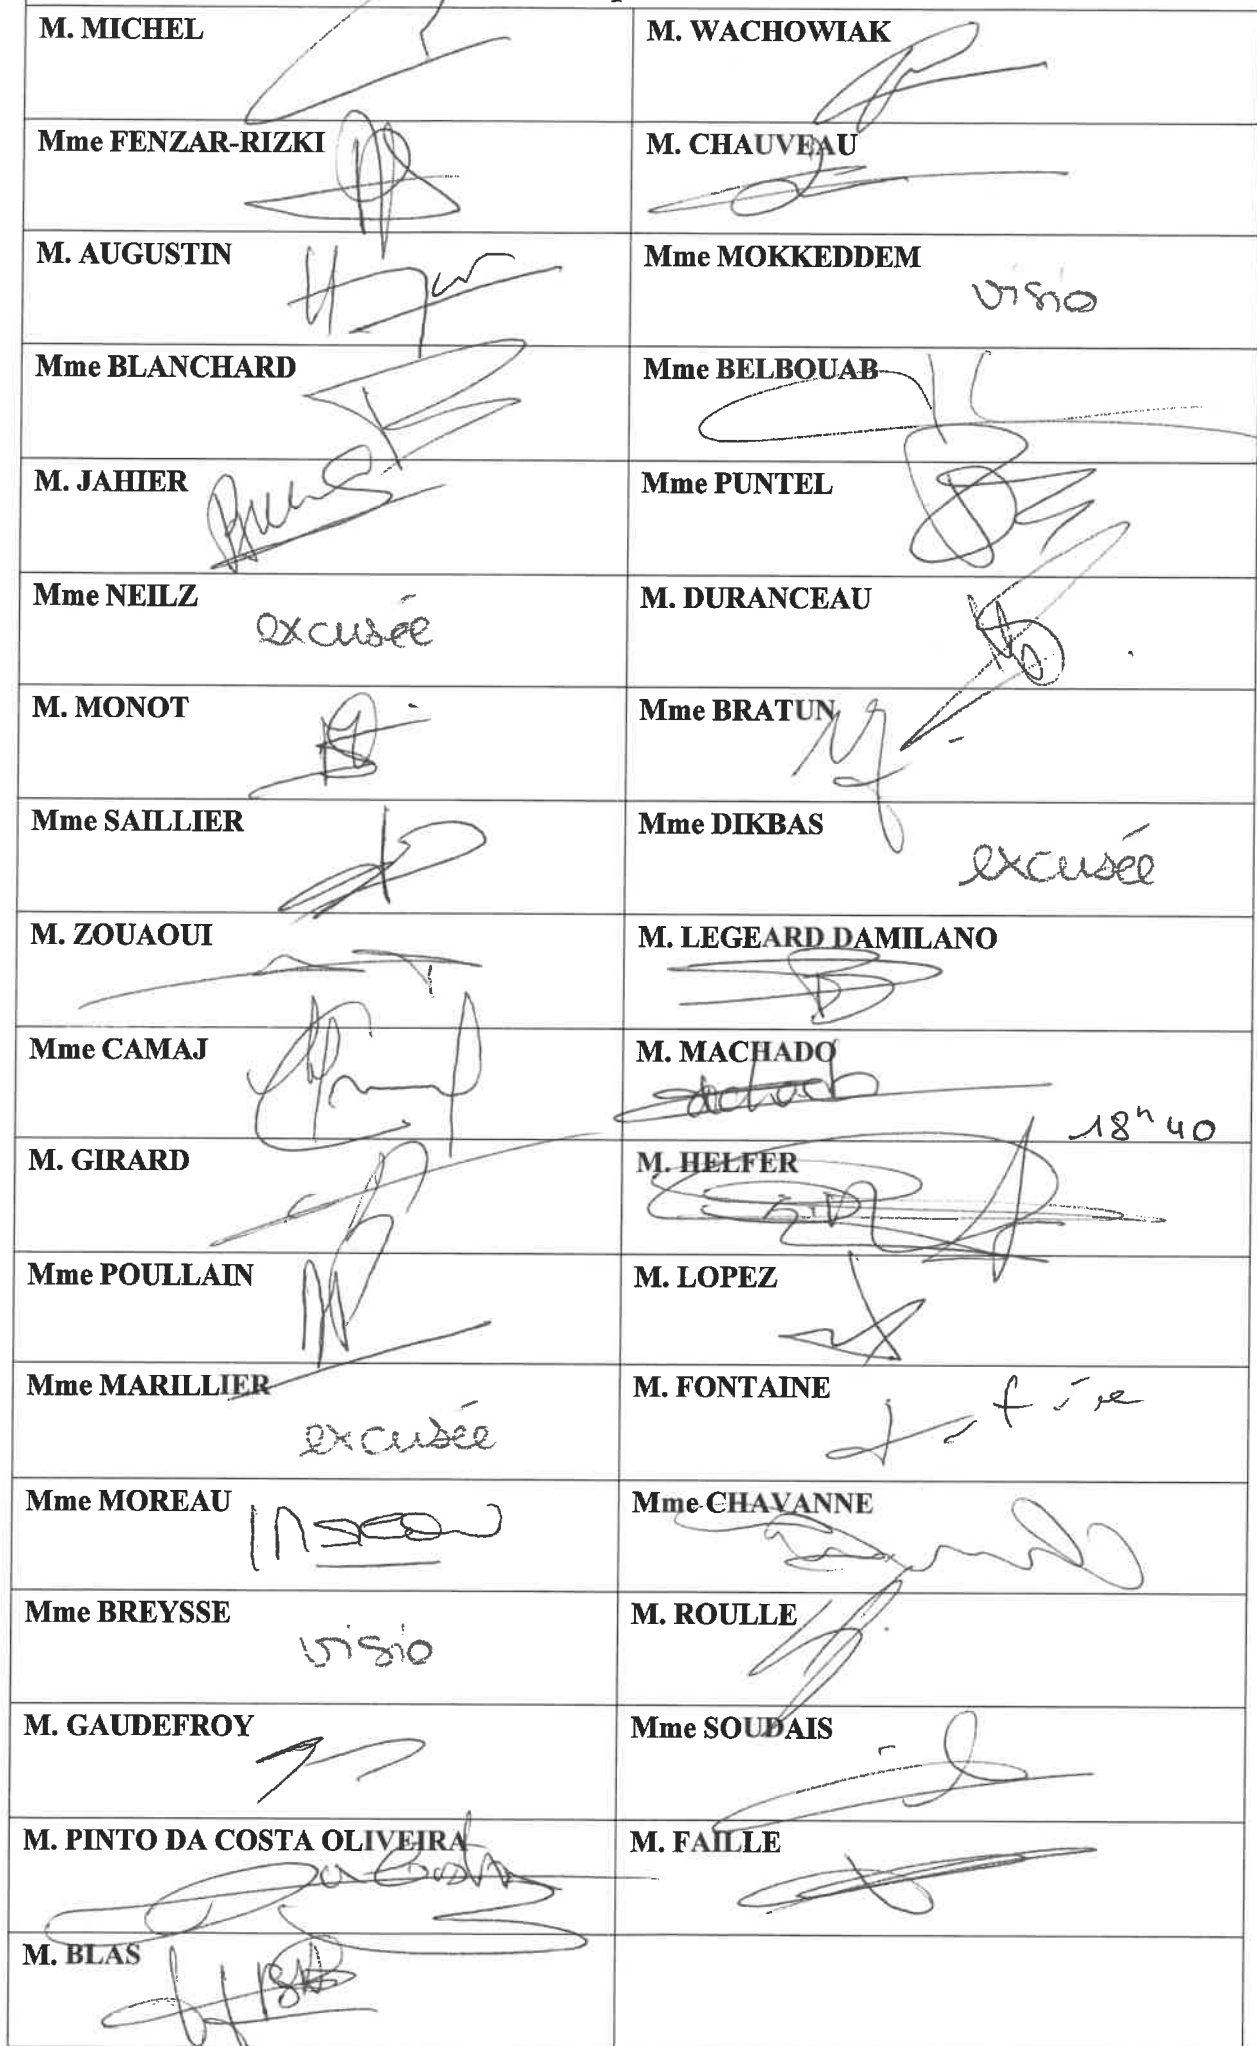 M. MICHEL
M. WACHOWIAK
Mme FENZAR-RIZKI
M. CHAUVEAU
M. AUGUSTIN
Mme MOKKEDDEM
visio
Mme BLANCHARD
Mme BELBOUAB
M. JAHIER
Mme PUNTEL
Mme NEILZ
excusée
M. DURANCEAU
M. MONOT
Mme BRATUN
Mme SAILLIER
Mme DIKBAS
excusée
M. ZOUAOUI
M. LEGEARD DAMILANO
Mme CAMAJ
M. MACHADO
18h40
M. GIRARD
M. HELFER
Mme POULLAIN
M. LOPEZ
Mme MARILLIER
excusée
M. FONTAINE
Mme MOREAU
Mme CHAVANNE
Mme BREYSSE
visio
M. ROULLE
M. GAUDEFROY
Mme SOUDAIS
M. PINTO DA COSTA OLIVEIRA
M. FAILLE
M. BLAS